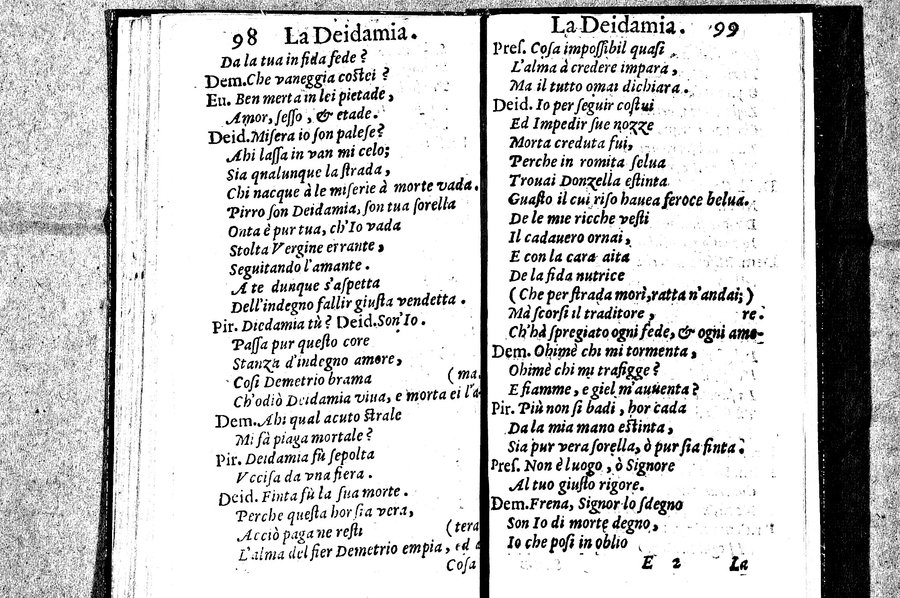 98 La Deidamia.
Da la tua infida fede?
Dem. Che vaneggia costei?
Eu. Ben merta in lei pietade,
Amor, sesso, & etade.
Deid. Misera io son palese?
Ahi lassa in van mi celo;
Sia qnalunque la strada,
Chi nacque à le miserie à morte vada.
Pirro son Deidamia, son tua sorella
Onta è pur tua, ch'Io vada
Stolta Vergine errante,
Seguitando l'amante.
A te dunque s'aspetta
Dell'indegno fallir giusta vendetta.
Pir. Diedamia tù? Deid. Son'Io.
Passa pur questo core
Stanza d'indegno amore,
Cosi Demetrio brama (ma.
Ch'odiò Deidamia viua, e morta ei l'a-
Dem. Ahi qual acuto strale
Mi fà piaga mortale?
Pir. Deidamia fù sepolta
Vccisa da vna fiera.
Deid. Finta fù la sua morte.
Perche questa hor sia vera,
Acciò paga ne resti (tera
L'alma del fier Demetrio empia, ed
Cosa
La Deidamia. 99
Pres. Cosa impossibil quasi
L'alma à credere impara,
Ma il tutto omai dichiara.
Deid. Io per seguir costui
Ed Impedir sue nozze
Morta creduta fui,
Perche in romita selua
Trouai Donzella estinta
Guasto il cui riso hauea feroce belua.
De le mie ricche vesti
Il cadauero ornai,
E con la cara aita
De la fida nutrice
(Che per strada morì, ratta n'andai;)
Mà scorsi il traditore, re.
Ch'hà spregiato ogni fede, & ogni amo-
Dem. Ohimè chi mi tormenta,
Ohimè chi mi trafigge?
E fiamme, e giel m'auuenta?
Pir. Più non si badi, hor cada
Da la mia mano estinta,
Sia pur vera sorella, ò pur sia finta.
Pres. Non è luogo, ò Signore
Al tuo giusto rigore.
Dem. Frena, Signor lo sdegno
Son Io di morte degno,
Io che posi in oblio
E 2 La